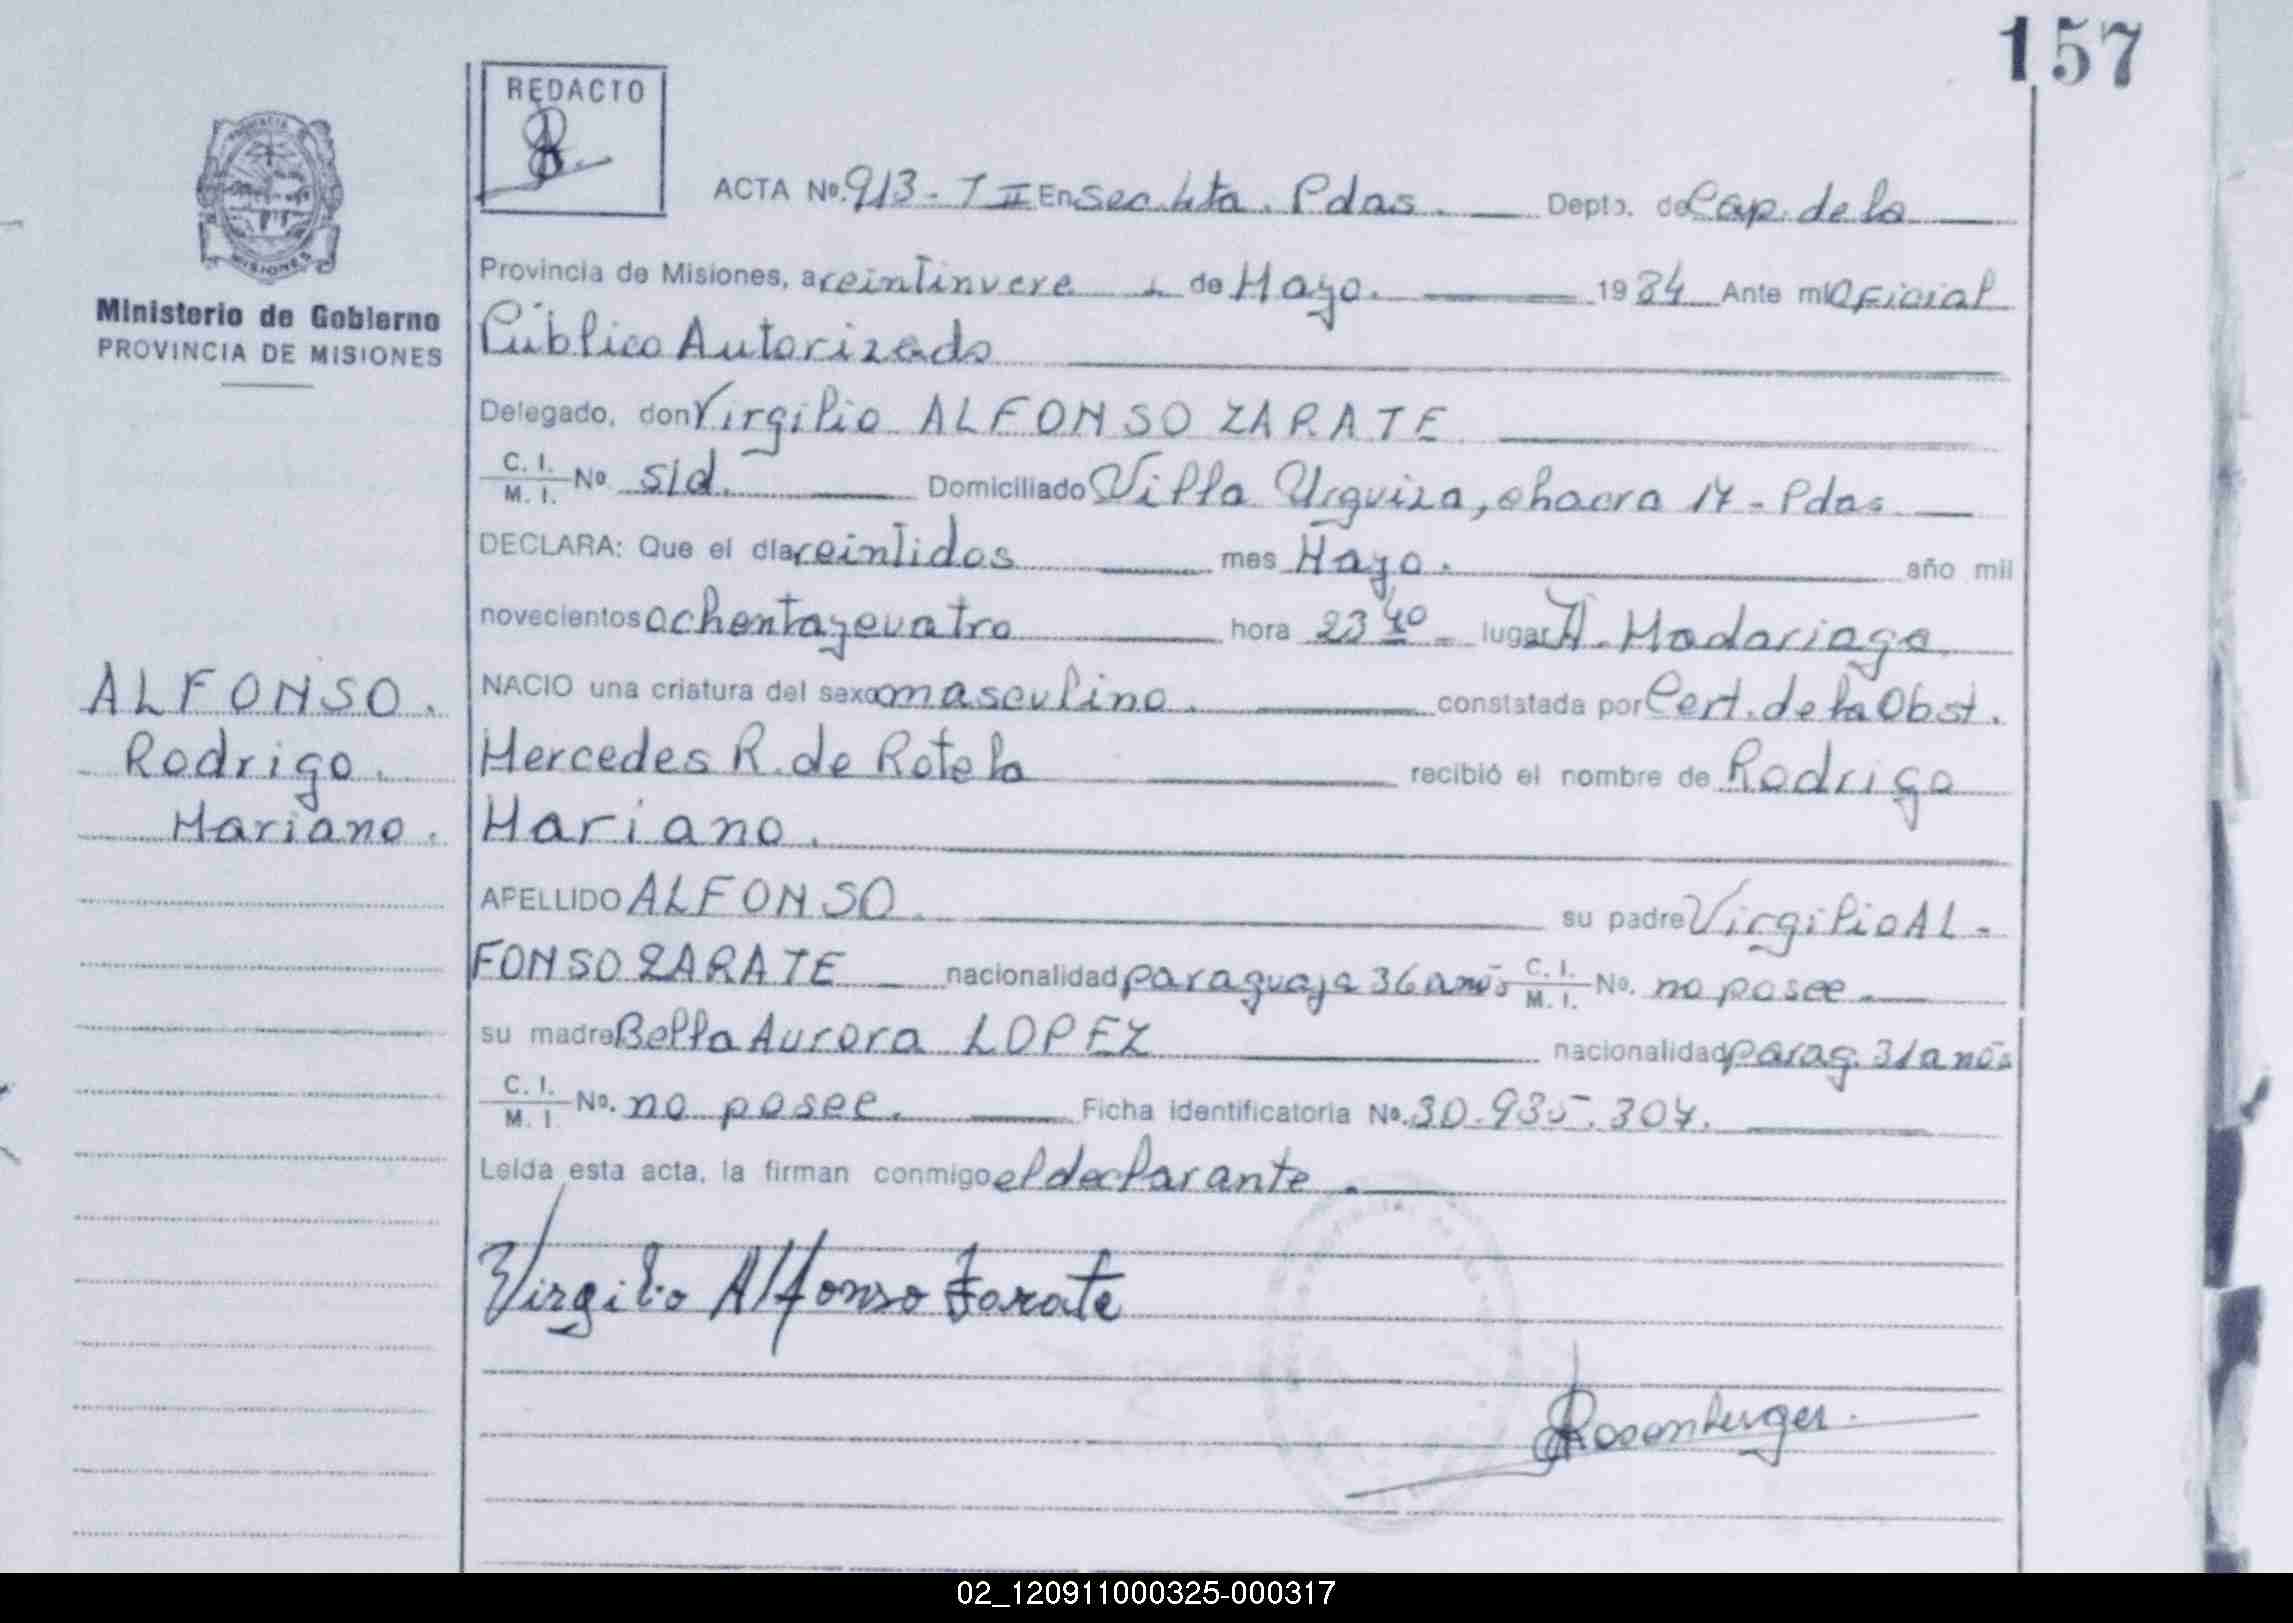 157
REDACTO
ACTA No. 913 - T II En Sec. 4ta. Pdas. Depto. de Cap. de la
Provincia de Misiones, a veintinueve de Mayo. 1984 Ante mi Oficial
Público Autorizado
Ministerio de Gobierno
PROVINCIA DE MISIONES
Delegado, don Virgilio ALFONSO ZARATE
C. I. / M. I. No s/d. Domiciliado Villa Urquiza, chacra 17 - Pdas
DECLARA: Que el día veintidos mes Mayo. año mil
novecientos ochentaycuatro hora 23 40 lugar H. Madariaga
NACIO una criatura del sexo masculino. constatada por Cert. de la Obst.
Mercedes R. de Rotela recibió el nombre de Rodrigo
Mariano.
ALFONSO.
Rodrigo.
Mariano.
APELLIDO ALFONSO. su padre Virgilio AL-
FONSO ZARATE nacionalidad paraguaya 36 años C. I. / M. I. No. no posee.
su madre Bella Aurora LOPEZ nacionalidad parag. 31 años
C. I. / M. I. No. no posee. Ficha identificatoria No. 30.935.307.
Leída esta acta, la firman conmigo el declarante.
Virgilio Alfonso Zarate
Rosenberger.
02_120911000325-000317